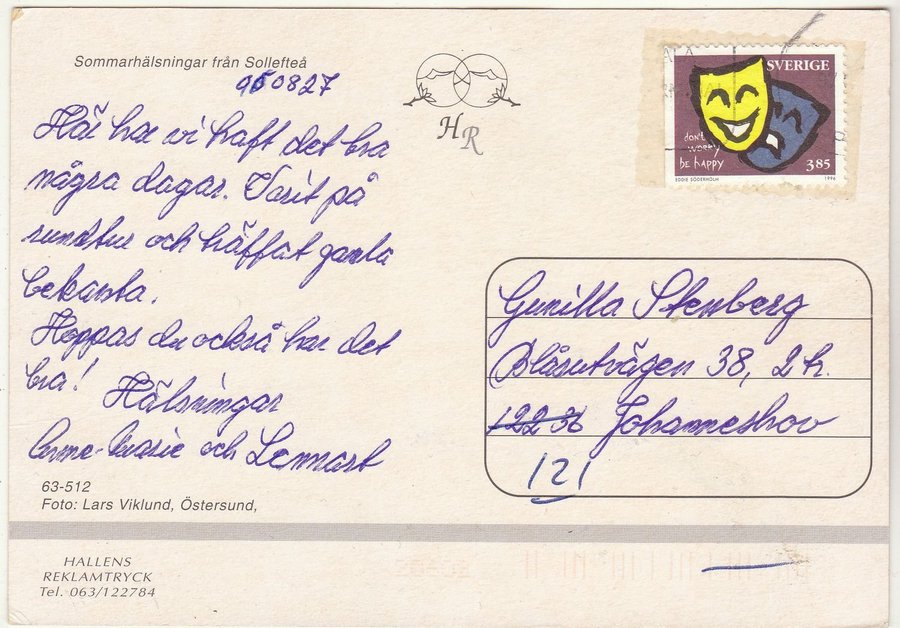 Sommarhälsningar från Sollefteå
960827
Här har vi haft det bra
några dagar. Varit på
rundtur och träffat gamla
bekanta.
Hoppas du också har det
bra!
Hälsningar
Anne-Marie och Lennart
63-512
Foto: Lars Viklund, Östersund,
HALLENS
REKLAMTRYCK
Tel. 063/122784
HR
SVERIGE
don't
worry
be happy
3.85
EDDIE SÖDERHOLM
1996
Gunilla Stenberg
Blåsutvägen 38, 2 h.
122 36 Johanneshov
121